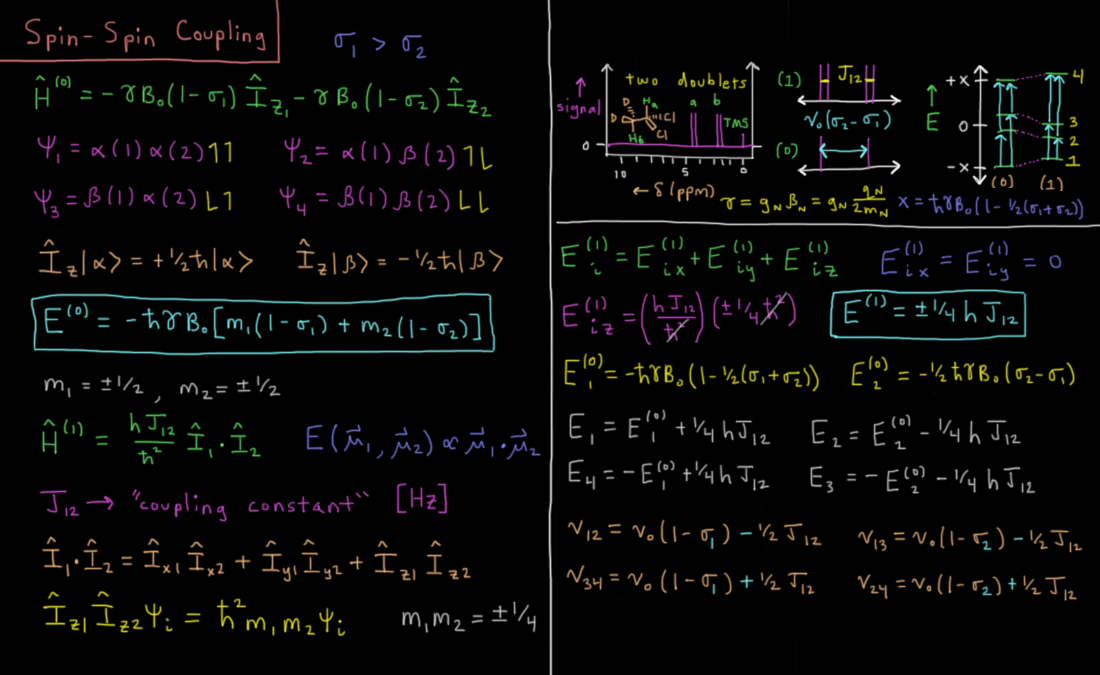 Spin-Spin Coupling
σ₁ > σ₂
Ĥ⁽⁰⁾ = -γB₀(1-σ₁)Î_z₁ - γB₀(1-σ₂)Î_z₂
Ψ₁ = α(1)α(2)↿↿
Ψ₂ = α(1)β(2)↿⇂
Ψ₃ = β(1)α(2)⇂↿
Ψ₄ = β(1)β(2)⇂⇂
Î_z|α> = +½ħ|α>
Î_z|β> = -½ħ|β>
E⁽⁰⁾ = -ħγB₀[m₁(1-σ₁) + m₂(1-σ₂)]
m₁ = ±1/2 , m₂ = ±1/2
Ĥ⁽¹⁾ = hJ₁₂/ħ² Î₁·Î₂
E(μ⃗₁, μ⃗₂) ∝ μ⃗₁·μ⃗₂
J₁₂ → "coupling constant" [Hz]
Î₁·Î₂ = Î_x₁ Î_x₂ + Î_y₁ Î_y₂ + Î_z₁ Î_z₂
Î_z₁ Î_z₂ Ψᵢ = ħ² m₁ m₂ Ψᵢ
m₁m₂ = ±1/4
signal
two doublets
D Ha
D Cl
Hb Cl
a b
TMS
0
10 5 0
← δ (ppm)
(1) J₁₂
ν₀(σ₂-σ₁)
(0)
E
+x
0
-x
4
3
2
1
(0) (1)
γ = g_N β_N = g_N q_N/2m_N
x = ħγB₀(1-½(σ₁+σ₂))
Eᵢ⁽¹⁾ = Eᵢₓ⁽¹⁾ + E_iy⁽¹⁾ + E_iz⁽¹⁾
Eᵢₓ⁽¹⁾ = E_iy⁽¹⁾ = 0
E_iz⁽¹⁾ = (hJ₁₂/ħ²)(±¼ħ²)
E⁽¹⁾ = ±¼ h J₁₂
E₁⁽⁰⁾ = -ħγB₀(1-½(σ₁+σ₂))
E₂⁽⁰⁾ = -½ħγB₀(σ₂-σ₁)
E₁ = E₁⁽⁰⁾ + ¼ h J₁₂
E₂ = E₂⁽⁰⁾ - ¼ h J₁₂
E₄ = -E₁⁽⁰⁾ + ¼ h J₁₂
E₃ = -E₂⁽⁰⁾ - ¼ h J₁₂
ν₁₂ = ν₀(1-σ₁) - ½ J₁₂
ν₁₃ = ν₀(1-σ₂) - ½ J₁₂
ν₃₄ = ν₀(1-σ₁) + ½ J₁₂
ν₂₄ = ν₀(1-σ₂) + ½ J₁₂